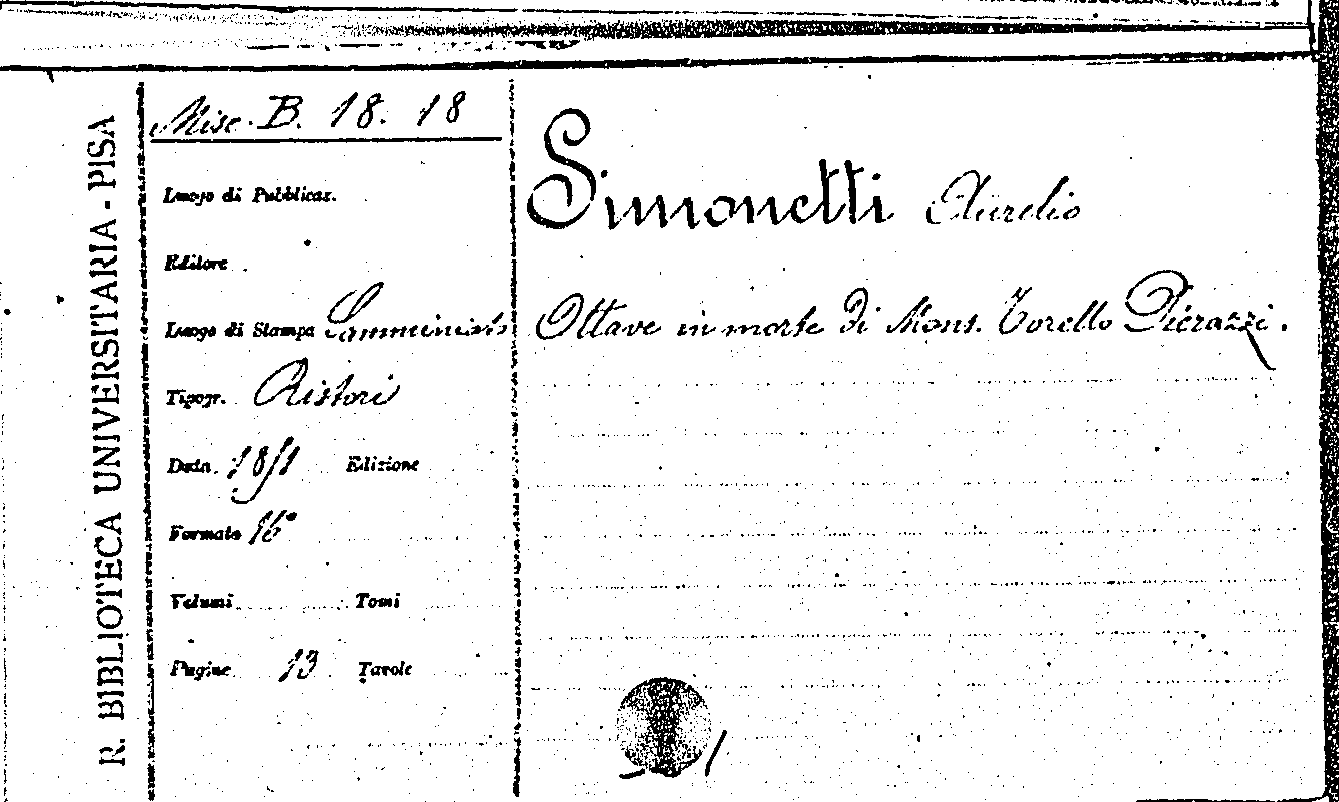 R. BIBLIOTECA UNIVERSITARIA - PISA
Misc. B. 18. 18
Luogo di Pubblicaz.
Editore
Luogo di Stampa Samminiato
Tipogr. Ristori
Data 1851 Edizione
Formato 16°
Volumi Tomi
Pagine 13 Tavole
Simonetti Aurelio
Ottave in morte di Mons. Torello Pierazzi.